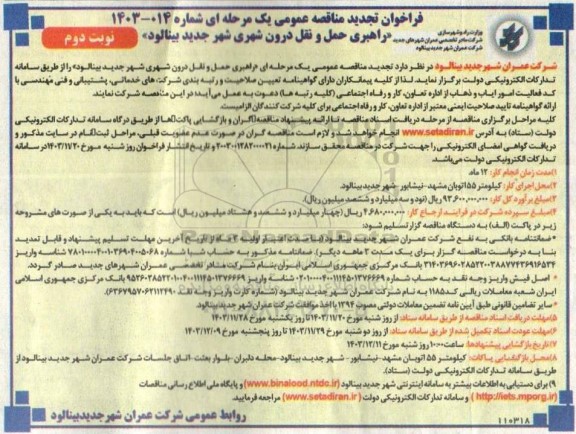 فراخوان تجدید مناقصه عمومی یک مرحله ای شماره ۰۱۴-۱۴۰۳
«راهبری حمل و نقل درون شهری شهر جدید بینالود»
نوبت دوم
وزارت راه و شهرسازی
شرکت عمران شهر جدید بینالود
شرکت عمران شهر جدید بینالود در نظر دارد تجدید مناقصه عمومی یک مرحله ای «راهبری حمل و نقل درون شهری شهر جدید بینالود» را از طریق سامانه
تدارکات الکترونیکی دولت برگزار نماید. لذا از کلیه پیمانکاران دارای گواهینامه تعیین صلاحیت و رتبه بندی شرکت های خدماتی، پشتیبانی و فنی مهندسی با
کد فعالیت امور ایاب و ذهاب از اداره تعاون، کار و رفاه اجتماعی (کلیه رتبه ها) دعوت به عمل می آید؛ در این مناقصه شرکت نمایند.
ارائه گواهینامه تایید صلاحیت ایمنی معتبر از اداره تعاون، کار و رفاه اجتماعی برای کلیه شرکت کنندگان الزامیست.
کلیه مراحل برگزاری مناقصه از مرحله دریافت اسناد مناقصه تا ارائه پیشنهاد مناقصه گران و بازگشایی پاکت ها از طریق درگاه سامانه تدارکات الکترونیکی
دولت (ستاد) به آدرس www.setadiran.ir انجام خواهد شد و لازم است مناقصه گران در صورت عدم عضویت قبلی، مراحل ثبت نام در سایت مذکور و
دریافت گواهی امضای الکترونیکی را جهت شرکت در مناقصه محقق سازند. شماره و تاریخ انتشار فراخوان روز شنبه مورخ ۱۴۰۳/۱۱/۲۰ در سامانه
تدارکات الکترونیکی دولت می باشد.
۱)مدت زمان انجام کار: ۱۲ ماه.
۲)محل اجرای کار: کیلومتر ۵۵ اتوبان مشهد-نیشابور -شهر جدید بینالود.
۳)مبلغ برآورد کل کار: ۹۳,۶۰۰,۰۰۰,۰۰۰ ریال (نود و سه میلیارد و ششصد میلیون ریال).
۴)مبلغ سپرده شرکت در فرآیند ارجاع کار: ۴,۶۸۰,۰۰۰,۰۰۰ ریال (چهار میلیارد و ششصد و هشتاد میلیون ریال) است که باید به یکی از صورت های مشروحه
زیر در پاکت (الف) به دستگاه مناقصه گزار تسلیم شود:
- ضمانتنامه بانکی به نفع شرکت عمران شهر جدید بینالود (با مدت اعتبار اولیه ۳ ماه از تاریخ آخرین مهلت تسلیم پیشنهاد و قابل تمدید
بنا به درخواست مناقصه گزار برای یک مدت ۳ ماهه دیگر).
- سایر تضامین قانونی طبق آیین نامه تضمین معاملات دولتی مصوب ۱۳۹۴ با اخذ موافقت شرکت عمران شهر جدید بینالود.
۵)مهلت دریافت اسناد مناقصه از طریق سامانه ستاد: از روز شنبه مورخ ۱۴۰۳/۱۱/۲۰ تا روز یکشنبه مورخ ۱۴۰۳/۱۱/۲۸
۶)مهلت عودت اسناد تکمیل شده از طریق سامانه ستاد: از روز دو شنبه مورخ ۱۴۰۳/۱۱/۲۹ تا روز پنجشنبه مورخ ۱۴۰۳/۱۲/۰۹
۷)تاریخ بازگشایی پیشنهادها: ساعت ۱۰:۰۰ روز شنبه مورخ ۱۴۰۳/۱۲/۱۱
۸)محل بازگشایی پاکات: کیلومتر ۵۵ اتوبان مشهد-نیشابور - شهر جدید بینالود-محله دلبران -بلوار بعثت-اتاق جلسات شرکت عمران شهر جدید بینالود از
طریق سامانه تدارکات الکترونیکی دولت (ستاد).
۹) برای دستیابی به اطلاعات بیشتر به سامانه اینترنتی شهر جدید بینالود (www.binalood.ntdc.ir) و پایگاه ملی اطلاع رسانی مناقصات
(http://iets.mporg.ir) و سامانه تدارکات الکترونیکی دولت (www.setadiran.ir) مراجعه فرمایید.
روابط عمومی شرکت عمران شهر جدید بینالود
۱۱۰۳۱۸